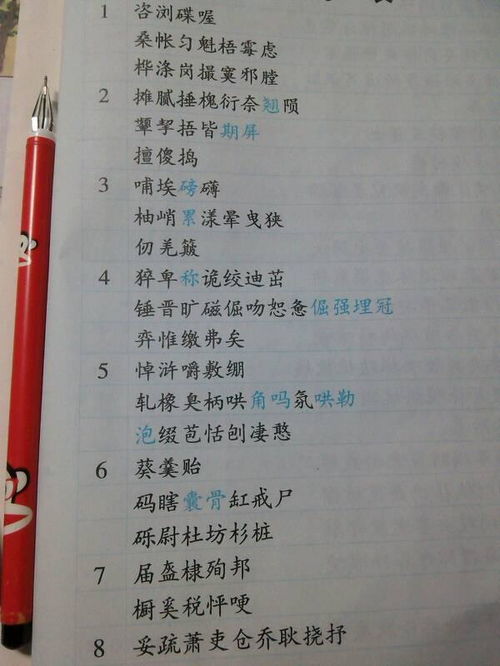 1 咨浏碟喔
桑帐匀魁梧霉虑
桦涤岗撮寞邪膛
2 摊腻捶槐衍奈翘陨
颦挈捂皆期屏
擅傻捣
3 哺埃磅礴
柚峭累漾晕曳狭
仞羌簸
4 猝卑称诡绞迪茁
锤晋旷磁倔吻恕惫倔强埋冠
弈惟缴弗矣
5 悼浒嚼敷绷
轧橡臭柄哄角吗氛哄勒
泡缀芭恬刨凄憨
6 葵羹贻
码瞎囊骨缸戒尸
砾尉杜坊杉桩
7 届盔棣殉邦
橱奚税怦哽
8 妥疏萧吏仓乔耿挠抒